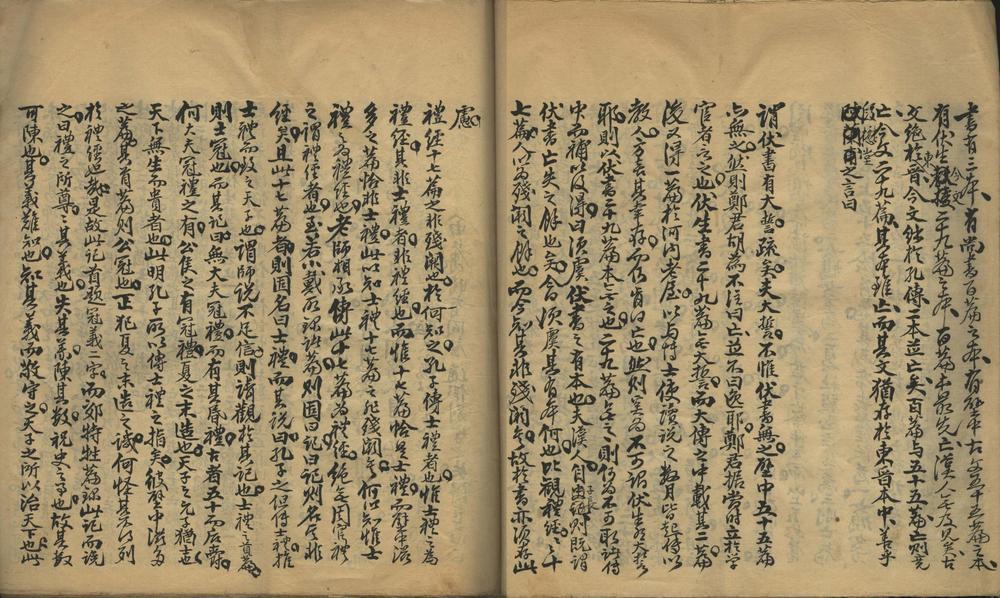 書有三本有尚書百篇之本有孔本古文五十五篇之本
有伏生二十九篇之本百篇本最先亡漢人
文絕於晉今文絕於孔傳二本並亡矣百篇与五十五篇亡則竟
亡今文二十九篇其本雖亡而其文猶存於東晉本中善乎
段懋堂之言曰
謂伏書有大誓疏矣夫大誓不惟伏書無之壁中五十五篇
亦無之然則鄭君胡為不注曰亡並不曰逸耶鄭君据當時立於學
官者言之也伏生書二十九篇無大誓而大傳之中載其二篇
後又得一篇於河內老屋以与博士使讀說之数月皆起傳以
教人
耶則以伏書二十九篇本
中而補以後得曰須虞伏書之有本也夫漢人
伏書亡失之餘也矣今須虞其有本何也比觀禮經之十
七篇人以為殘闕之餘也而今知其非殘闕矣故於書亦須存此
慮
禮經十七篇之非殘闕也於何知之孔子傳士禮者也惟士禮之為
禮經其非士禮者非禮經也而惟十七篇恰是士禮而
多之篇恰非士禮此以知士禮十七篇之非殘闕矣何以知惟士
禮之為禮經也老師相承傳此十七篇為禮經絕無周官禮
之謂禮經者也至若小戴所
經矣且此十七篇者則固名曰士禮而其說曰孔子之但傳士禮推
士禮而致之天子也謂師說不足信則請觀於其記也士禮之首篇
則士冠也而其記曰無大夫冠禮而有其昏禮古者五十而后爵
何大夫冠禮之有公侯之有冠禮夏之末造也天子之元子猶士也
天下無生而貴者也此明孔子所以傳士禮之指矣彼壁中溢多
之篇其首篇則公冠也正犯夏之末造之譏何怪其不得列
於禮經也是故此記首題冠義二字而郊特牲篇
之曰禮之所尊尊其義也失其義陳其数祝史之事也故其数
可陳也其義難知也知其義而敬守之天子之所以治天下也此